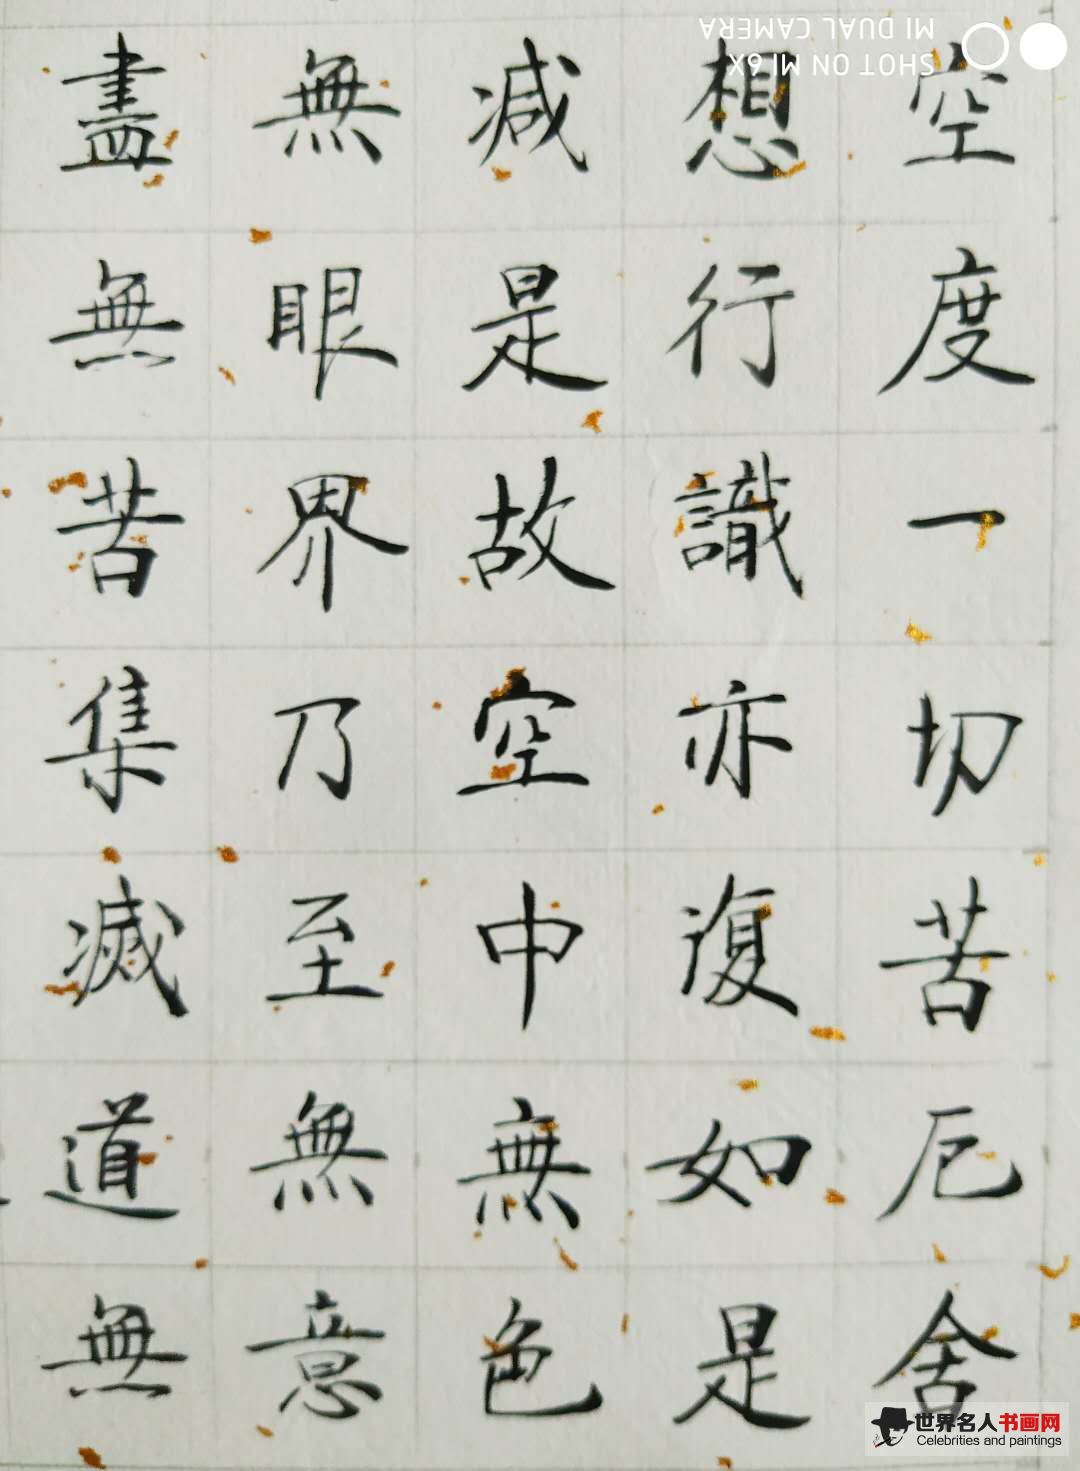 空度一切苦厄舍
想行識亦復如是
減是故空中無色
無眼界乃至無意
盡無苦集滅道無
SHOT ON MI 6X
MI DUAL CAMERA
世界名人书画网
Celebrities and paintings